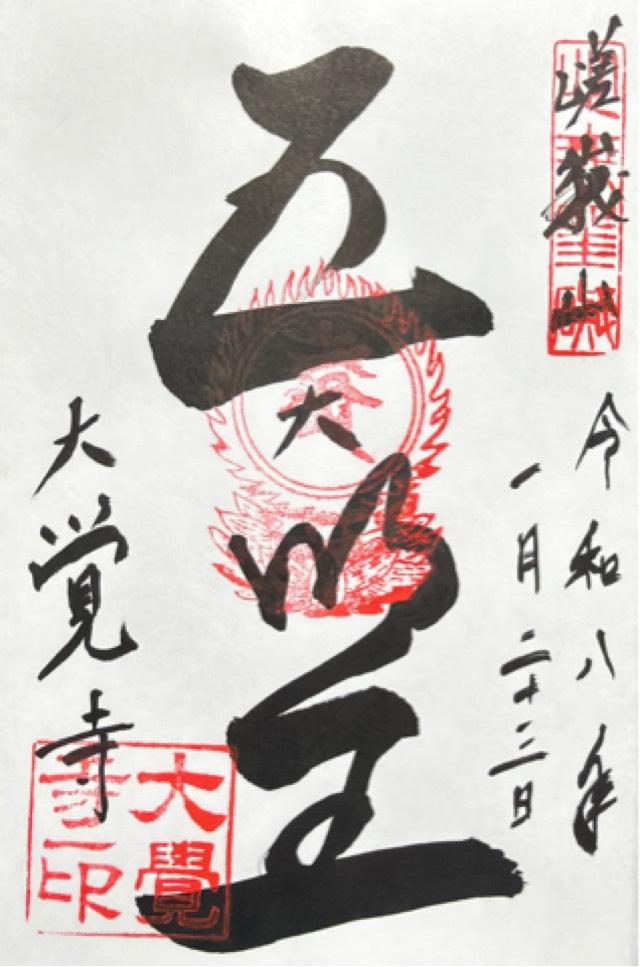 嵯峨山
令和八年
一月二十三日
五大明王
大覚寺
大覺
寺印